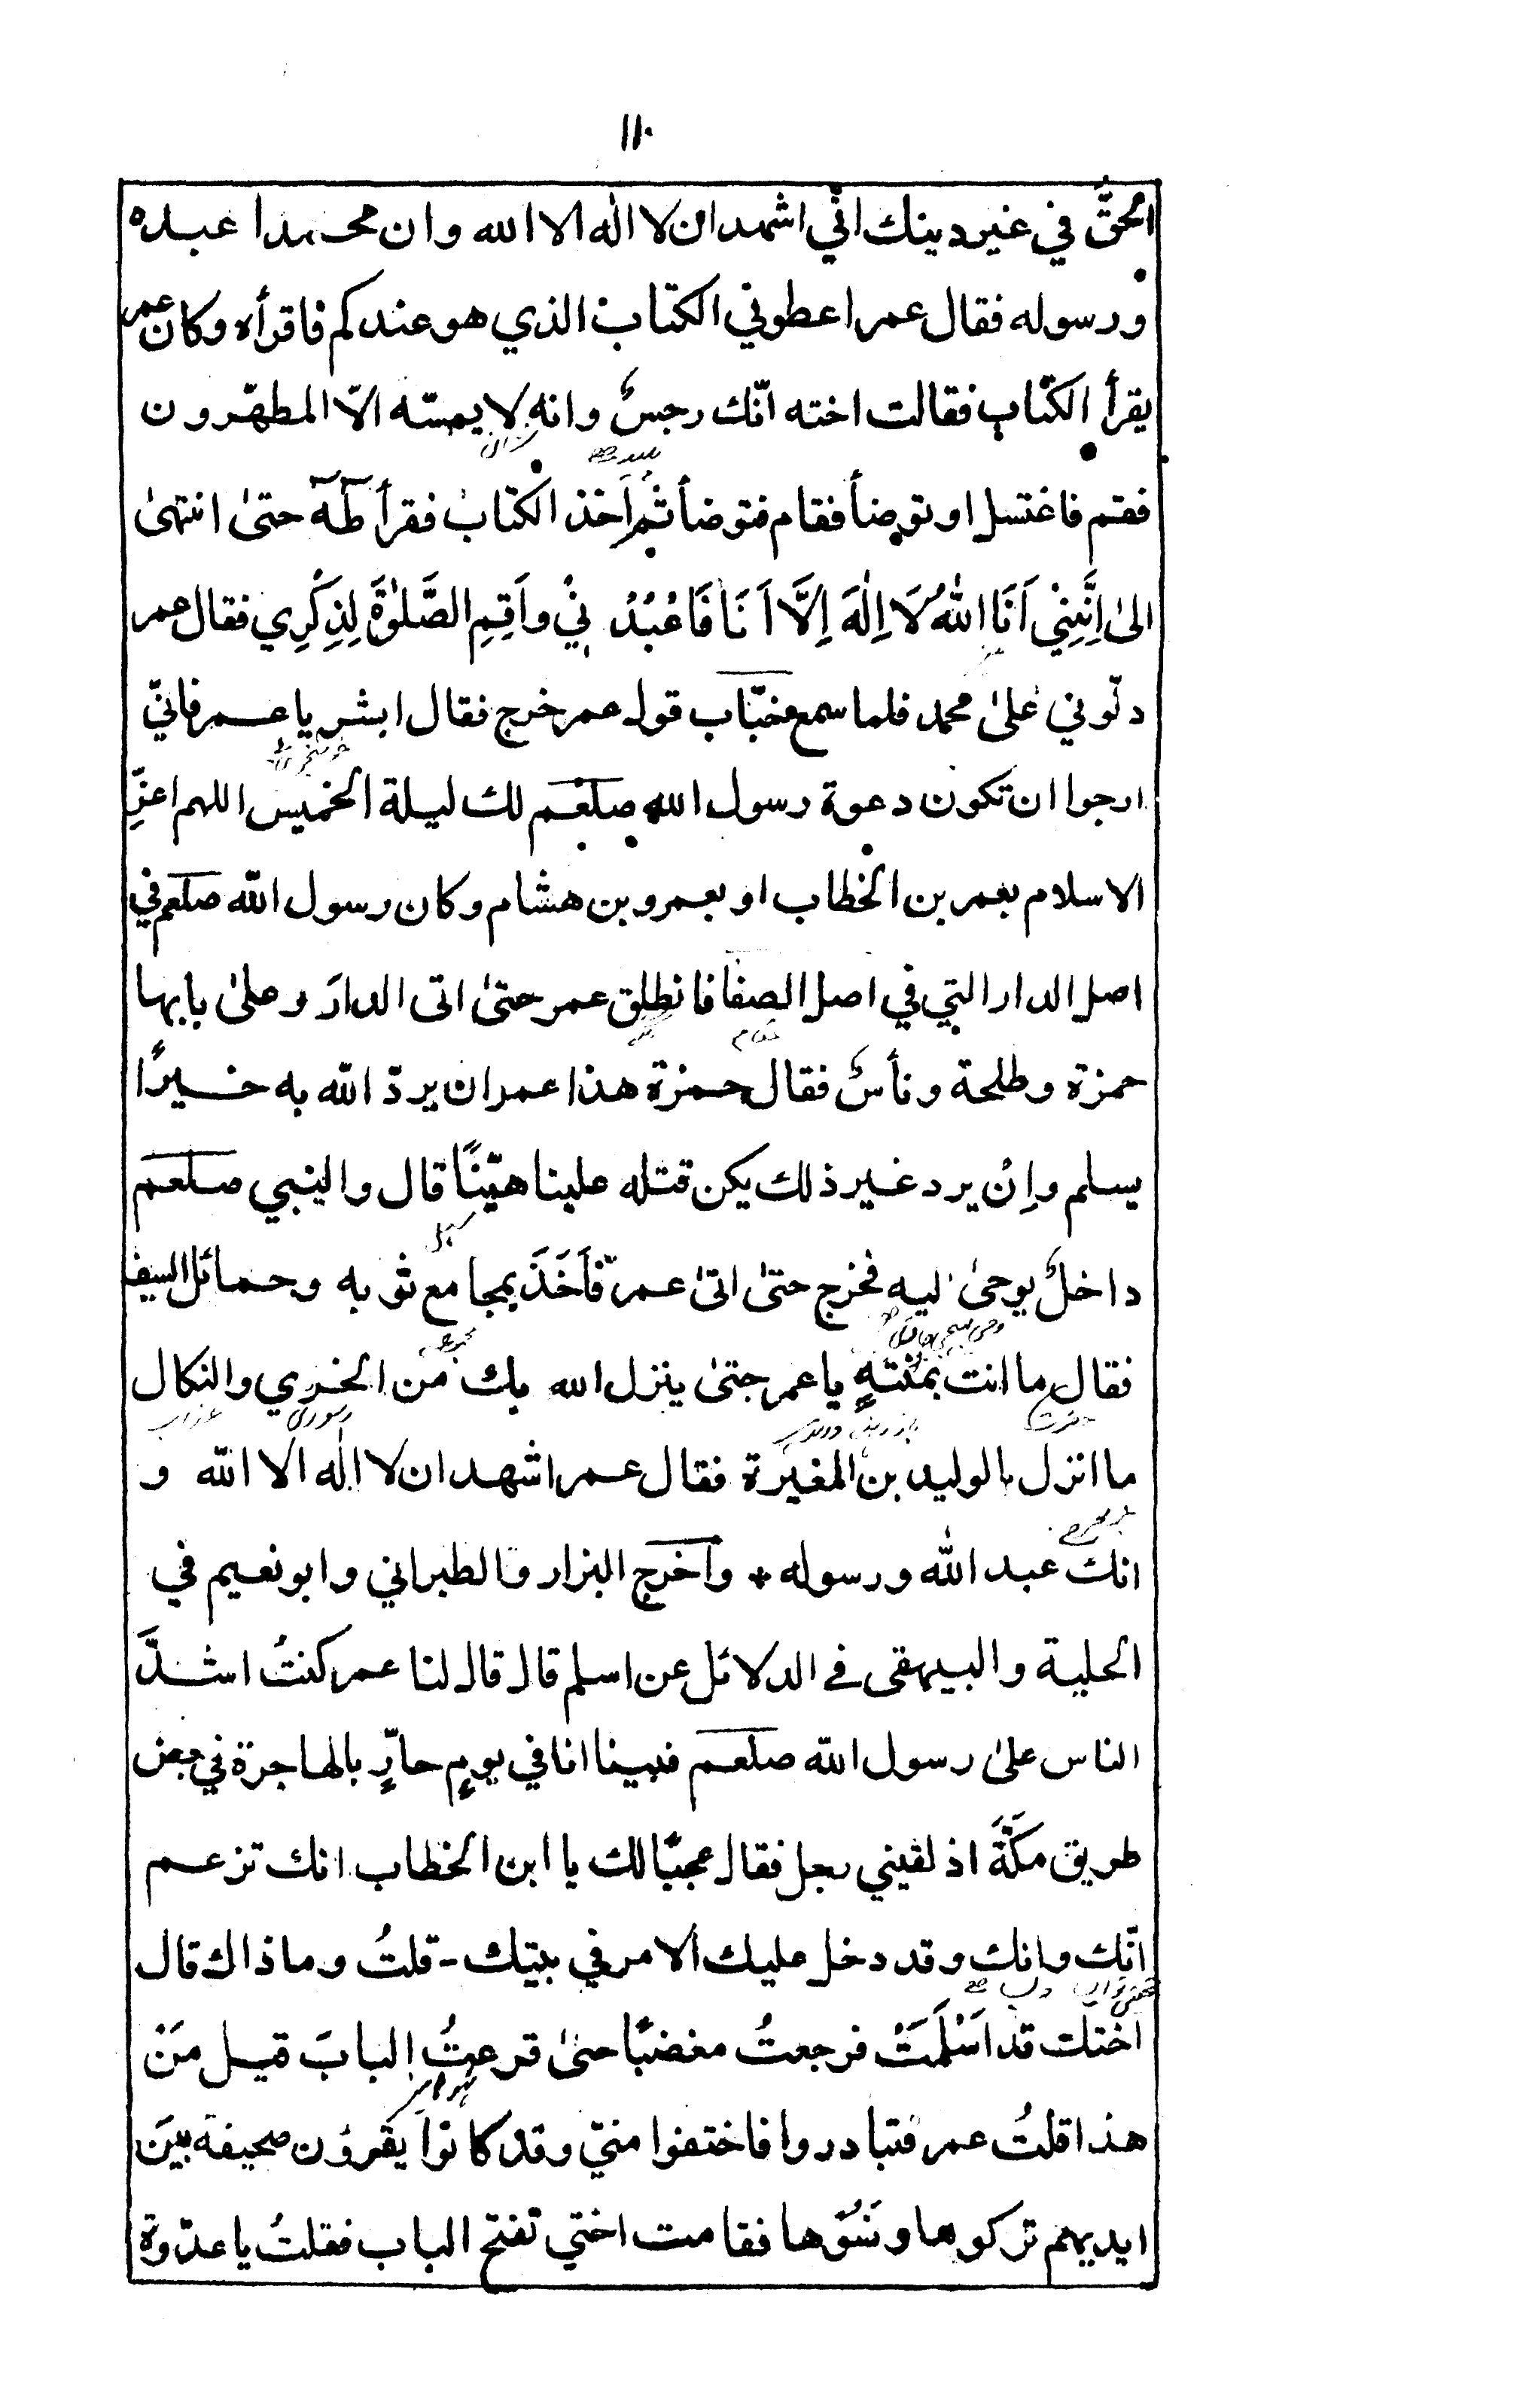 ١١٠
الحقَّ في غير دينك انّي اشهد ان لا اله الا الله وان محمدا عبده
ورسوله فقال عمر اعطوني الكتاب الذي هو عندكم فاقرأه وكان عمر
يقرأ الكتاب فقالت اخته انّك رجسٌ وانه لا يمسّه الّا المطهّرون
فقم فاغتسل او توضأ فقام فتوضأ ثم اَخذ الكتاب فقرأ طٰهٰ حتىٰ انتهىٰ
الىٰ اِنَّنِيْ اَنَا اللهُ لَا اِلٰهَ اِلَّا اَنَا فَاعْبُدْنِيْ واَقِمِ الصَّلوٰةَ لِذِكْرِي فقال عمر
دلّوني علىٰ محمد فلما سمع خبّاب قول عمر خرج فقال ابشر يا عمر فانيّ
ارجوا ان تكون دعوة رسول الله صلعم لك ليلة الخميس اللهم اعزّ
الاسلام بعمر بن الخطاب او بعمرو بن هشام وكان رسول الله صلعم في
اصل الدار التي في اصل الصفا فانطلق عمر حتىٰ اتى الدارَ وعلىٰ بابها
حمزة وطلحة وناسٌ فقال حمزة هذا عمر ان يردّ الله به خيرًا
يسلم واِنْ يرد غير ذلك يكن قتله علينا هيّنًا قال والنبي صلعم
داخلٌ يوحىٰ اليه فخرج حتىٰ اتىٰ عمر فَاَخَذَ بمجامع ثوبه وحمائل السيف
فقال ما انت بمنتهٍ يا عمر حتىٰ ينزل الله بك من الخزي والنكال
ما انزل بالوليد بن المغيرة فقال عمر اشهد ان لا اله الا الله و
انك عبد الله ورسوله * واخرج البزار والطبراني وابو نعيم في
الحلية والبيهقى في الدلائل عن اسلم قال قال لنا عمر كنتُ اشدَّ
الناس علىٰ رسول الله صلعم فبينا انا في يومٍ حارٍّ بالهاجرة في بعض
طريق مكّةَ اذ لقيني رجل فقال عجبًا لك يا ابن الخطاب انك تزعم
انّك وانك وقد دخل عليك الامر في بيتك - قلتُ وما ذاك قال
اختك قد اَسْلَمَتْ فرجعتُ مغضبًا حتىٰ قرعتُ البابَ قيل مَنْ
هذا قلتُ عمر فتبادروا فاختفوا منيّ وقد كانوا يقرؤن صحيفة بينَ
ايديهم تركوها ونَسُوْها فقامت اختي تفتح الباب فقلتُ يا عدّوة